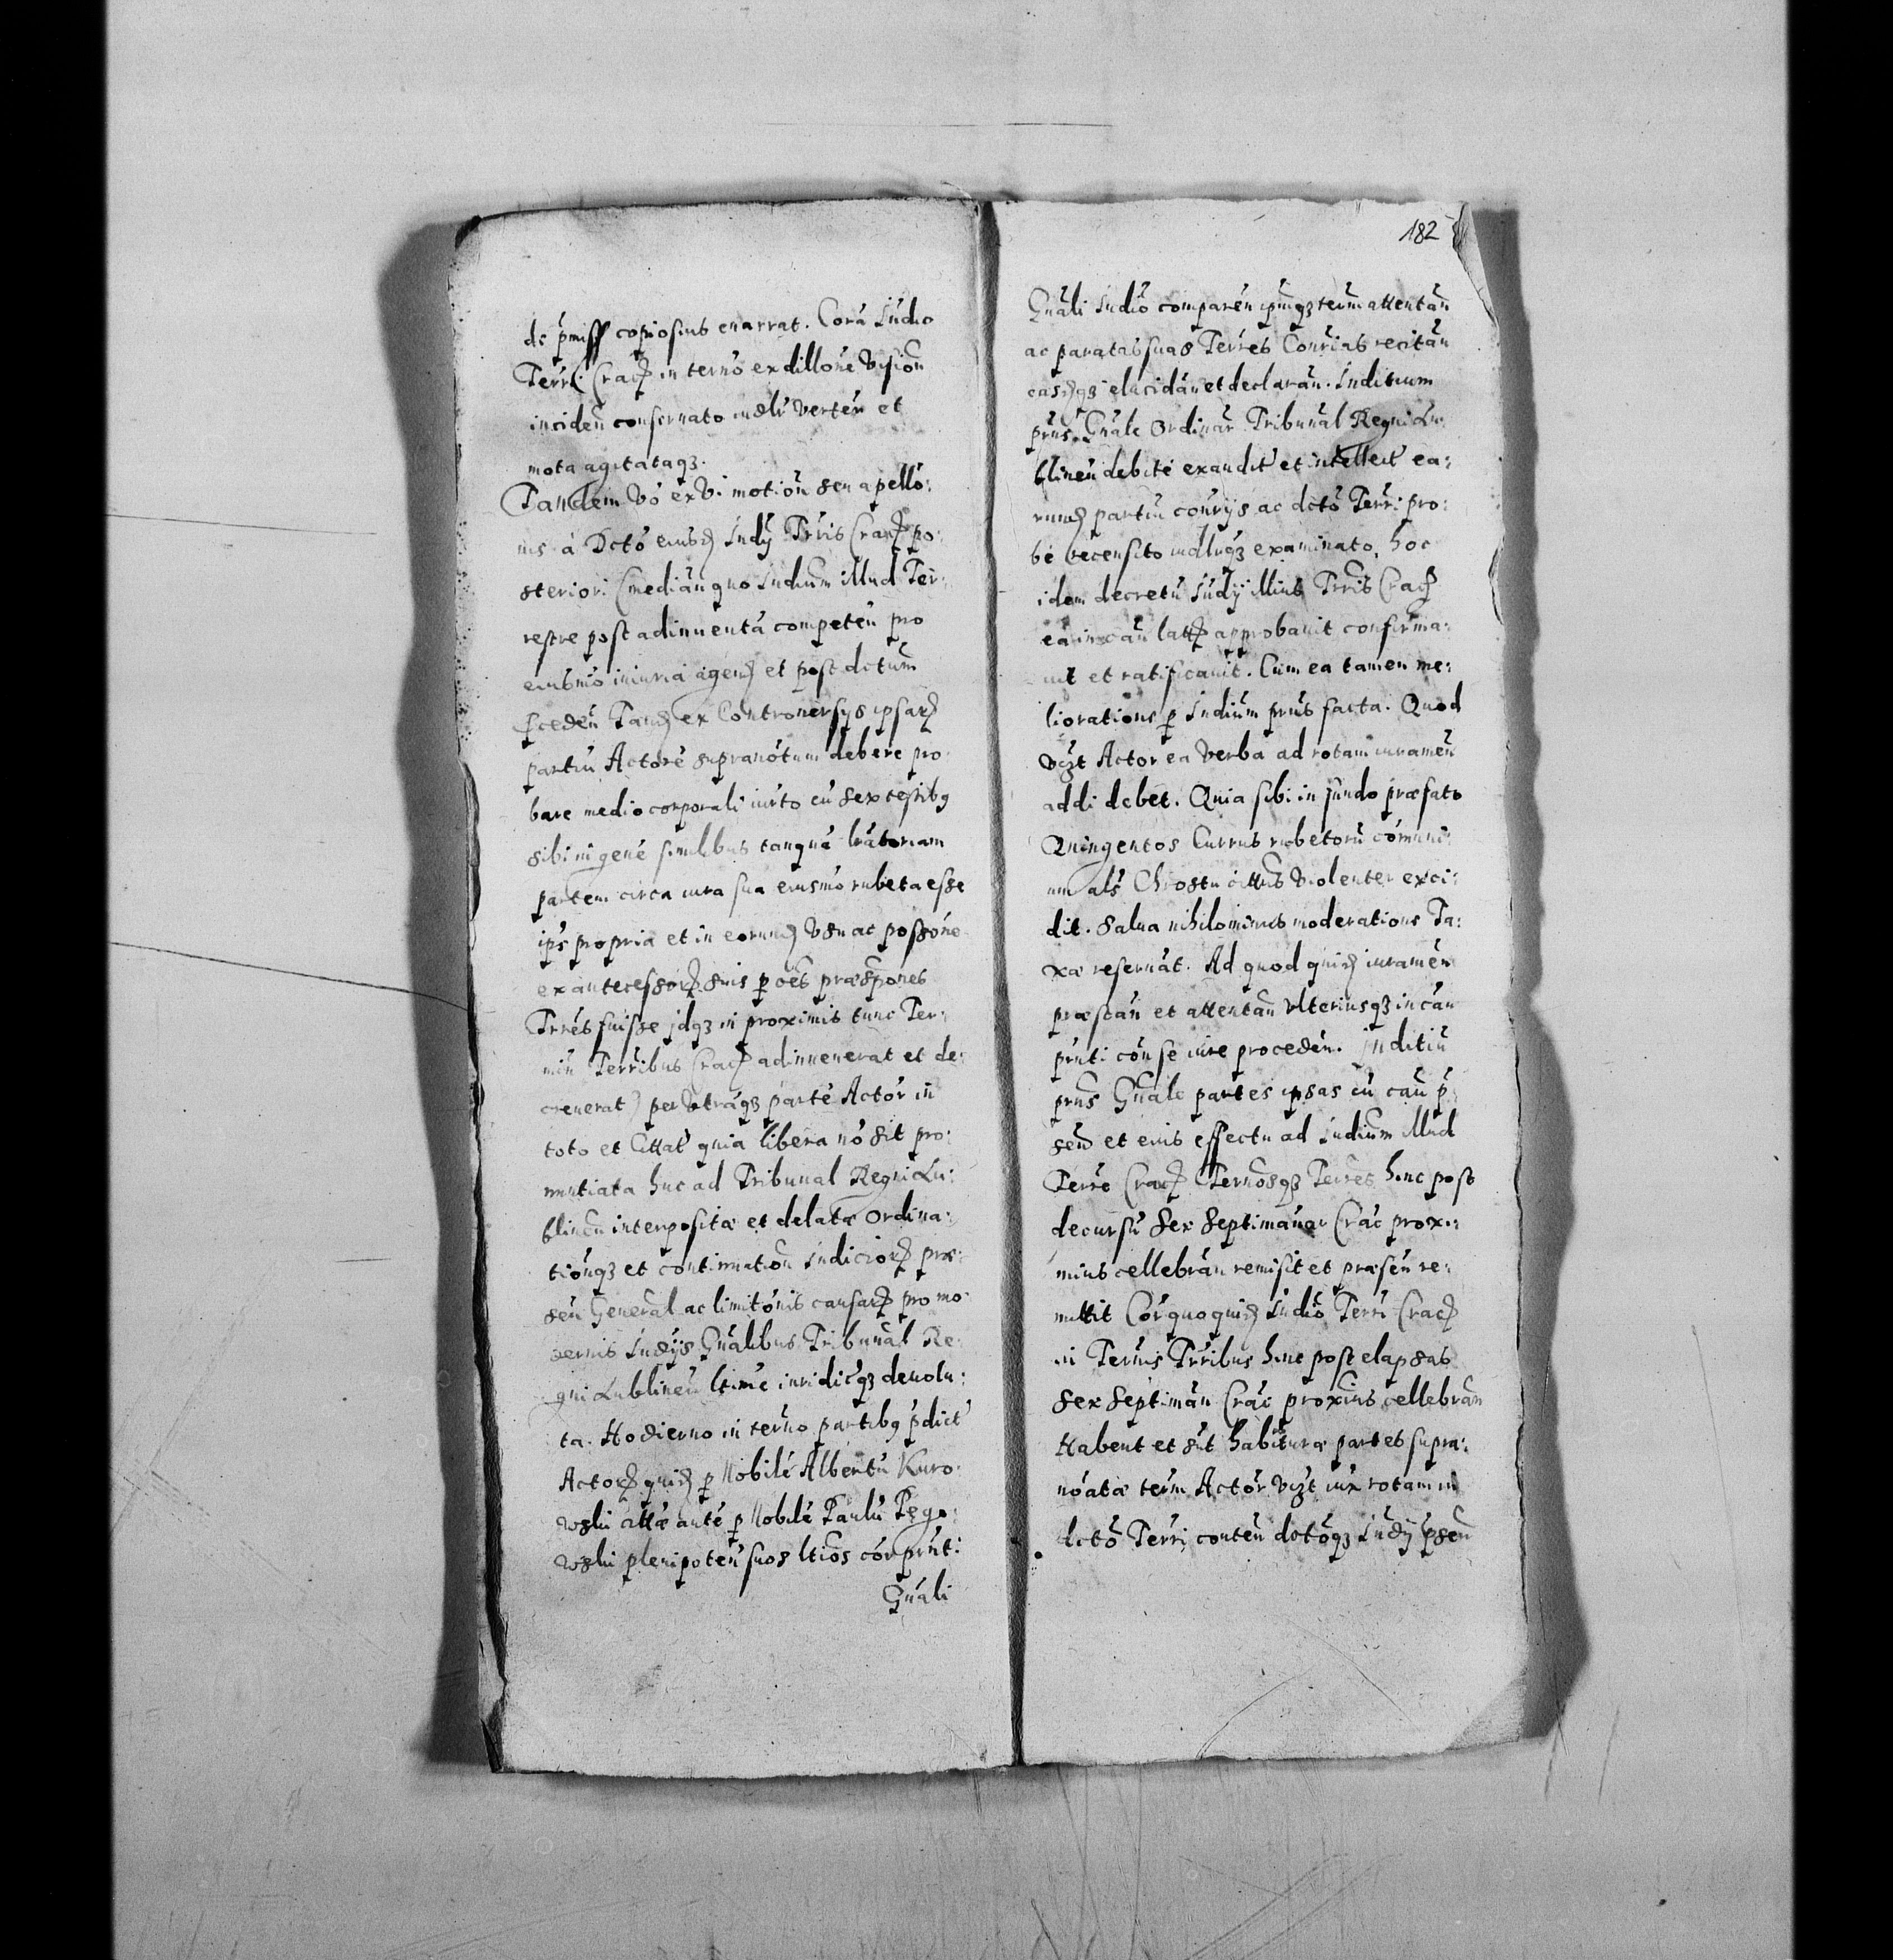 de pmiss copiosius enarrat. Corā Iudio
Terrī Crac in terno ex dillone Vision
inciden conservato indli verten et
mota agitataqz.
Tandem vo ex vi motion seu apello:
nis à Dcto eiusd Iudy Trris Crac po:
steriori (median quo Iudium illud Ter:
restre post adinventā competen pro
eiusmo iniuria agend et post dctum
sceden Tand ex Controversys ipsar
partiu Actorē supranotum debere pro
bare medio corporali iurto cū sex testibg
sibi in genē similibus tanquā
partem circa iura sua eiusmo rubeta esse
ips propria et in eorund vsu ac possone
ex antecessor suis p oes præspones
Trres fuisse idqz in proximis tunc Ter:
min Terribus Crac adinvenerat et de:
creverat) per vtrāqz partē Actor in
toto et Cittat quia libera nō sit pro:
nuntiata huc ad Tribunal Regni Lu:
blinen interpositæ et delatæ ordina:
tiōnqz et continuation Iudicior præ:
sen General ac limitōnis causar pro mo:
dernis Iudys Gnalibus Tribunal Re
gni Lublinen ltime iuridicqz devolu:
ta. Hodierno in terno partibg pdict
Actor quid p Nobilē Albertū Kuro:
wski cittæ autē p Nobilē Paulū Pego:
wski plenipoten suos ltios cōrprnti
Gnali
182
Gnali Iudio comparen ipmqz terum attentan
ac paratas suas Terres Conrias recitan
easdqz elucidan et declaran. Inditium
prns Gnale Ordinar Tribunal Regni Lu:
blinen debitē exaudit et intellect ea:
rund partiu conrys ac dcto Terri pro:
bē recensito indluqz examinato, hoc
idem decretū Iudy illius Trris Crac
ea in cau latt approbavit confirma:
vit et ratificavit. Cum ea tamen me:
lioratione p Iudium prns facta. Quod
vizt Actor ea verba ad rotam iuramen
addi debet. Quia sibi in fundo præfato
Quingentos Currus rubetorū cōmuni:
um als Chrostu cittus violenter exci:
dit. Salva nihilominus moderatione Ta:
xæ reservat. Ad quod quid iuramen
præstan et attentan vlteriusqz in cau
prnti con se iure proceden. Inditiu
prns Gnale partes ipsas cū cau p
sen et eius effectu ad Iudium illud
Terre Crac Ternosqz Terres hinc post
decursū sex septimanar Crac proxi:
mius cellebran remisit et præsen re:
mittit Cor quo quid Iudio Terri Crac
in Ternis Trribus hinc post elapsas
sex septiman Crac proxius cellebran
Habent et snt habituræ partes supra:
noatæ term Actor vizt iux rotam in
dcto Terri conten dctōqz Iudy psen